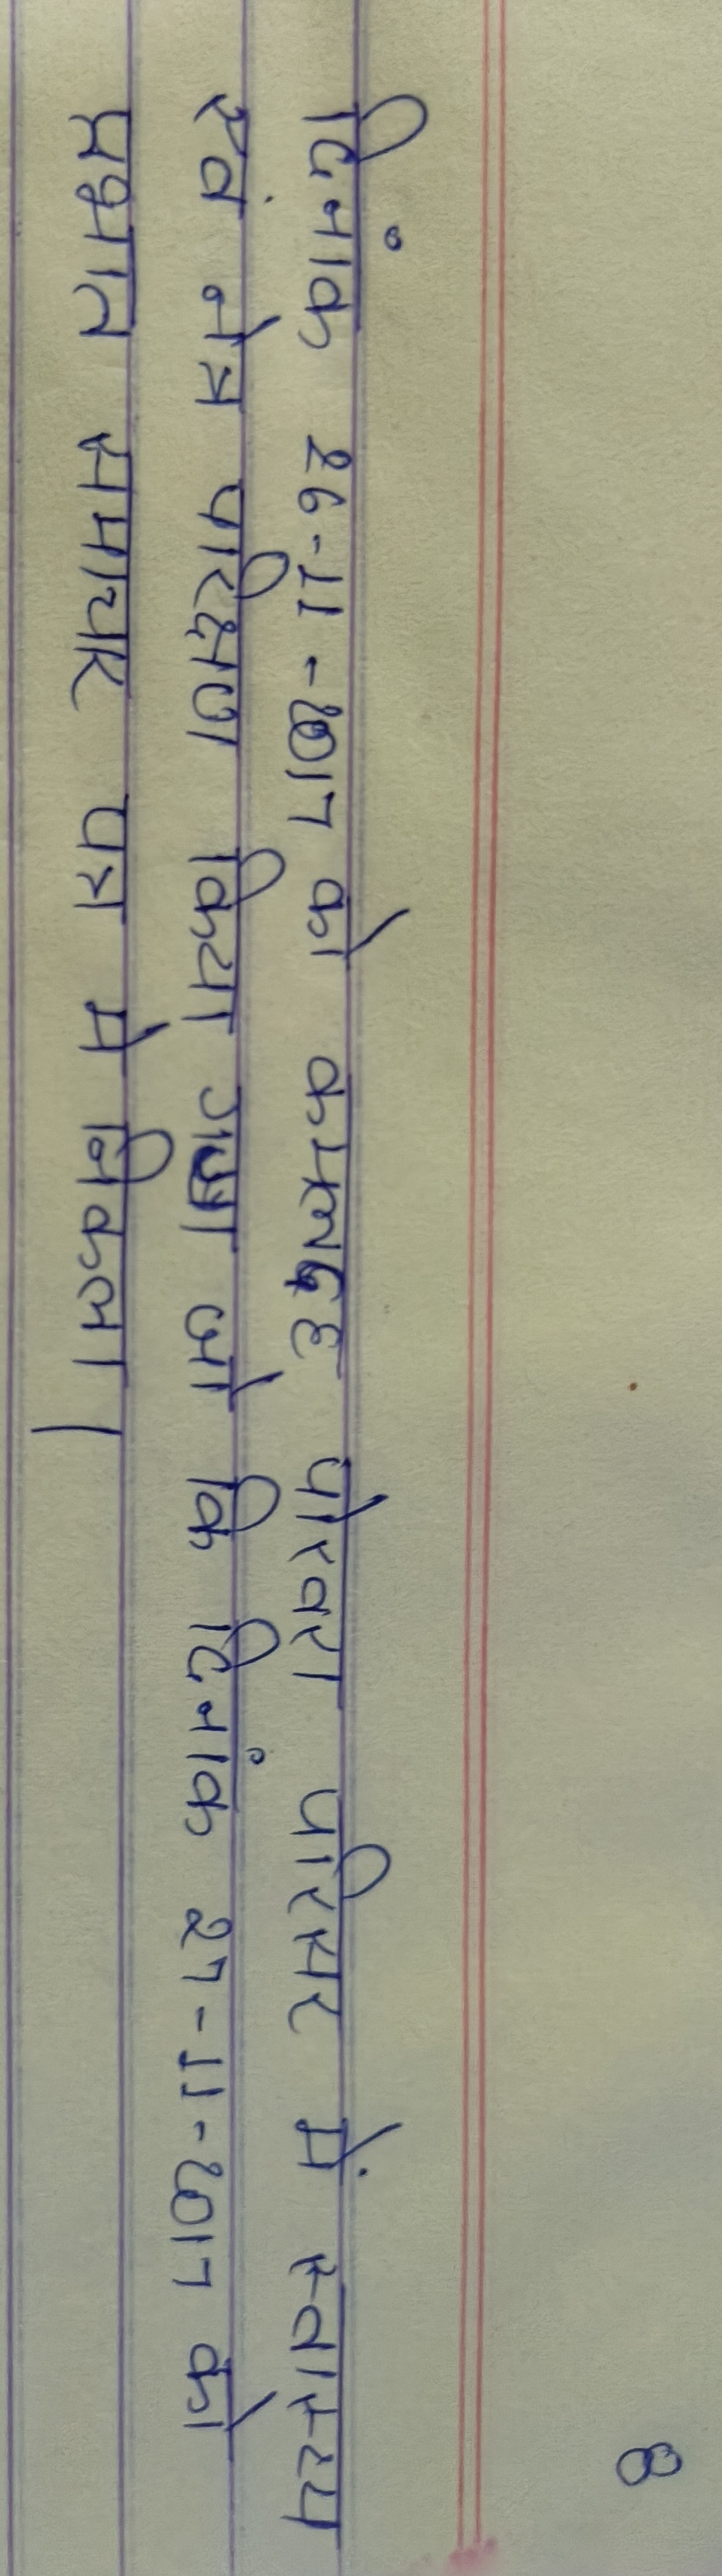 8
दिनांक 26-11-2017 को कमलदह पोखरा परिसर में स्वास्थ्य
एवं नेत्र परिक्षण किया गया जो कि दिनांक 27-11-2017 को
प्रभात समाचार पत्र मे निकला।